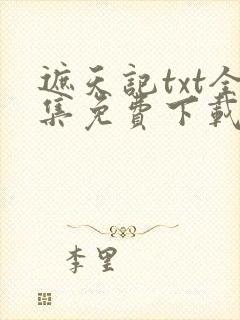 遮天記txt全
集免費下載
李里